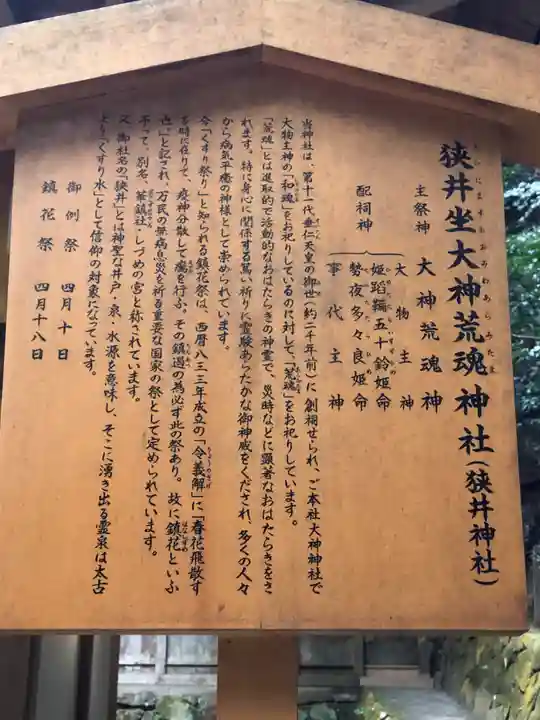 狭井坐大神荒魂神社(狭井神社)
さいにますおおみわあらみたま
主祭神　大神荒魂神
配祠神
大物主神
姫蹈鞴五十鈴姫命
勢夜多々良姫命
事代主神
当神社は、第十一代垂仁天皇の御世(約二千年前)に創祠せられ、ご本社大神神社で
大物主神の「和魂」をお祀りしているのに対して、「荒魂」をお祀りしています。
「荒魂」とは進取的で活動的なおはたらきの神霊で、災時などに顕著なおはたらきをさ
れます。特に身心に関係する篤い祈りに霊験あらたかな御神威をくだされ、多くの人々
から病気平癒の神様として崇められています。
今「くすり祭り」と知られる鎮花祭は、西暦八三三年成立の「令義解」に「春花飛散す
る時に在りて、疫神分散して癘を行ふ。その鎮遏の為必ず此の祭あり。故に鎮花といふ
也。」と記され、万民の無病息災を祈る重要な国家の祭として定められています。
よって、別名、華鎮社・しづめの宮と称されています。
又、御社名の「狭井」とは神聖な井戸・泉・水源を意味し、そこに湧き出る霊泉は太古
より「くすり水」として信仰の対象になっています。
御例祭　四月十日
鎮花祭　四月十八日